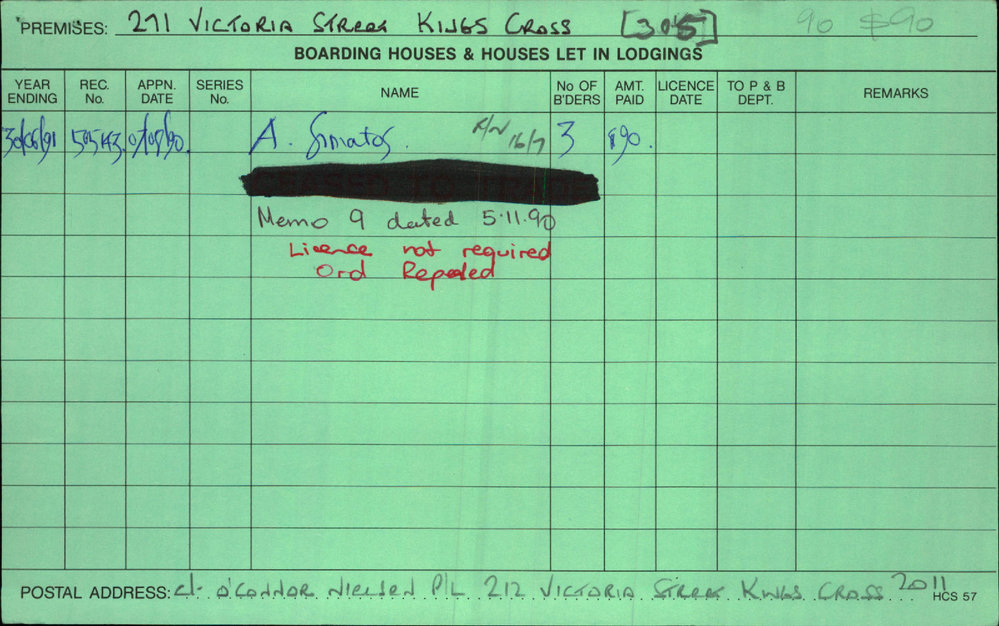 PREMISES: 271 VICTORIA STREET KINGS CROSS [305] 90 $90
BOARDING HOUSES & HOUSES LET IN LODGINGS
YEAR ENDING REC. No. APPN. DATE SERIES No. NAME No OF B'DERS AMT. PAID LICENCE DATE TO P & B DEPT. REMARKS
30/06/91 505143 07/09/90. A. 16/7 3 $90.
Memo 9 dated 5.11.90
Licence not required
Ord Repealed
POSTAL ADDRESS: C/- O'CONNOR NIELSEN P/L 212 VICTORIA STREET KINGS CROSS 2011
HCS 57